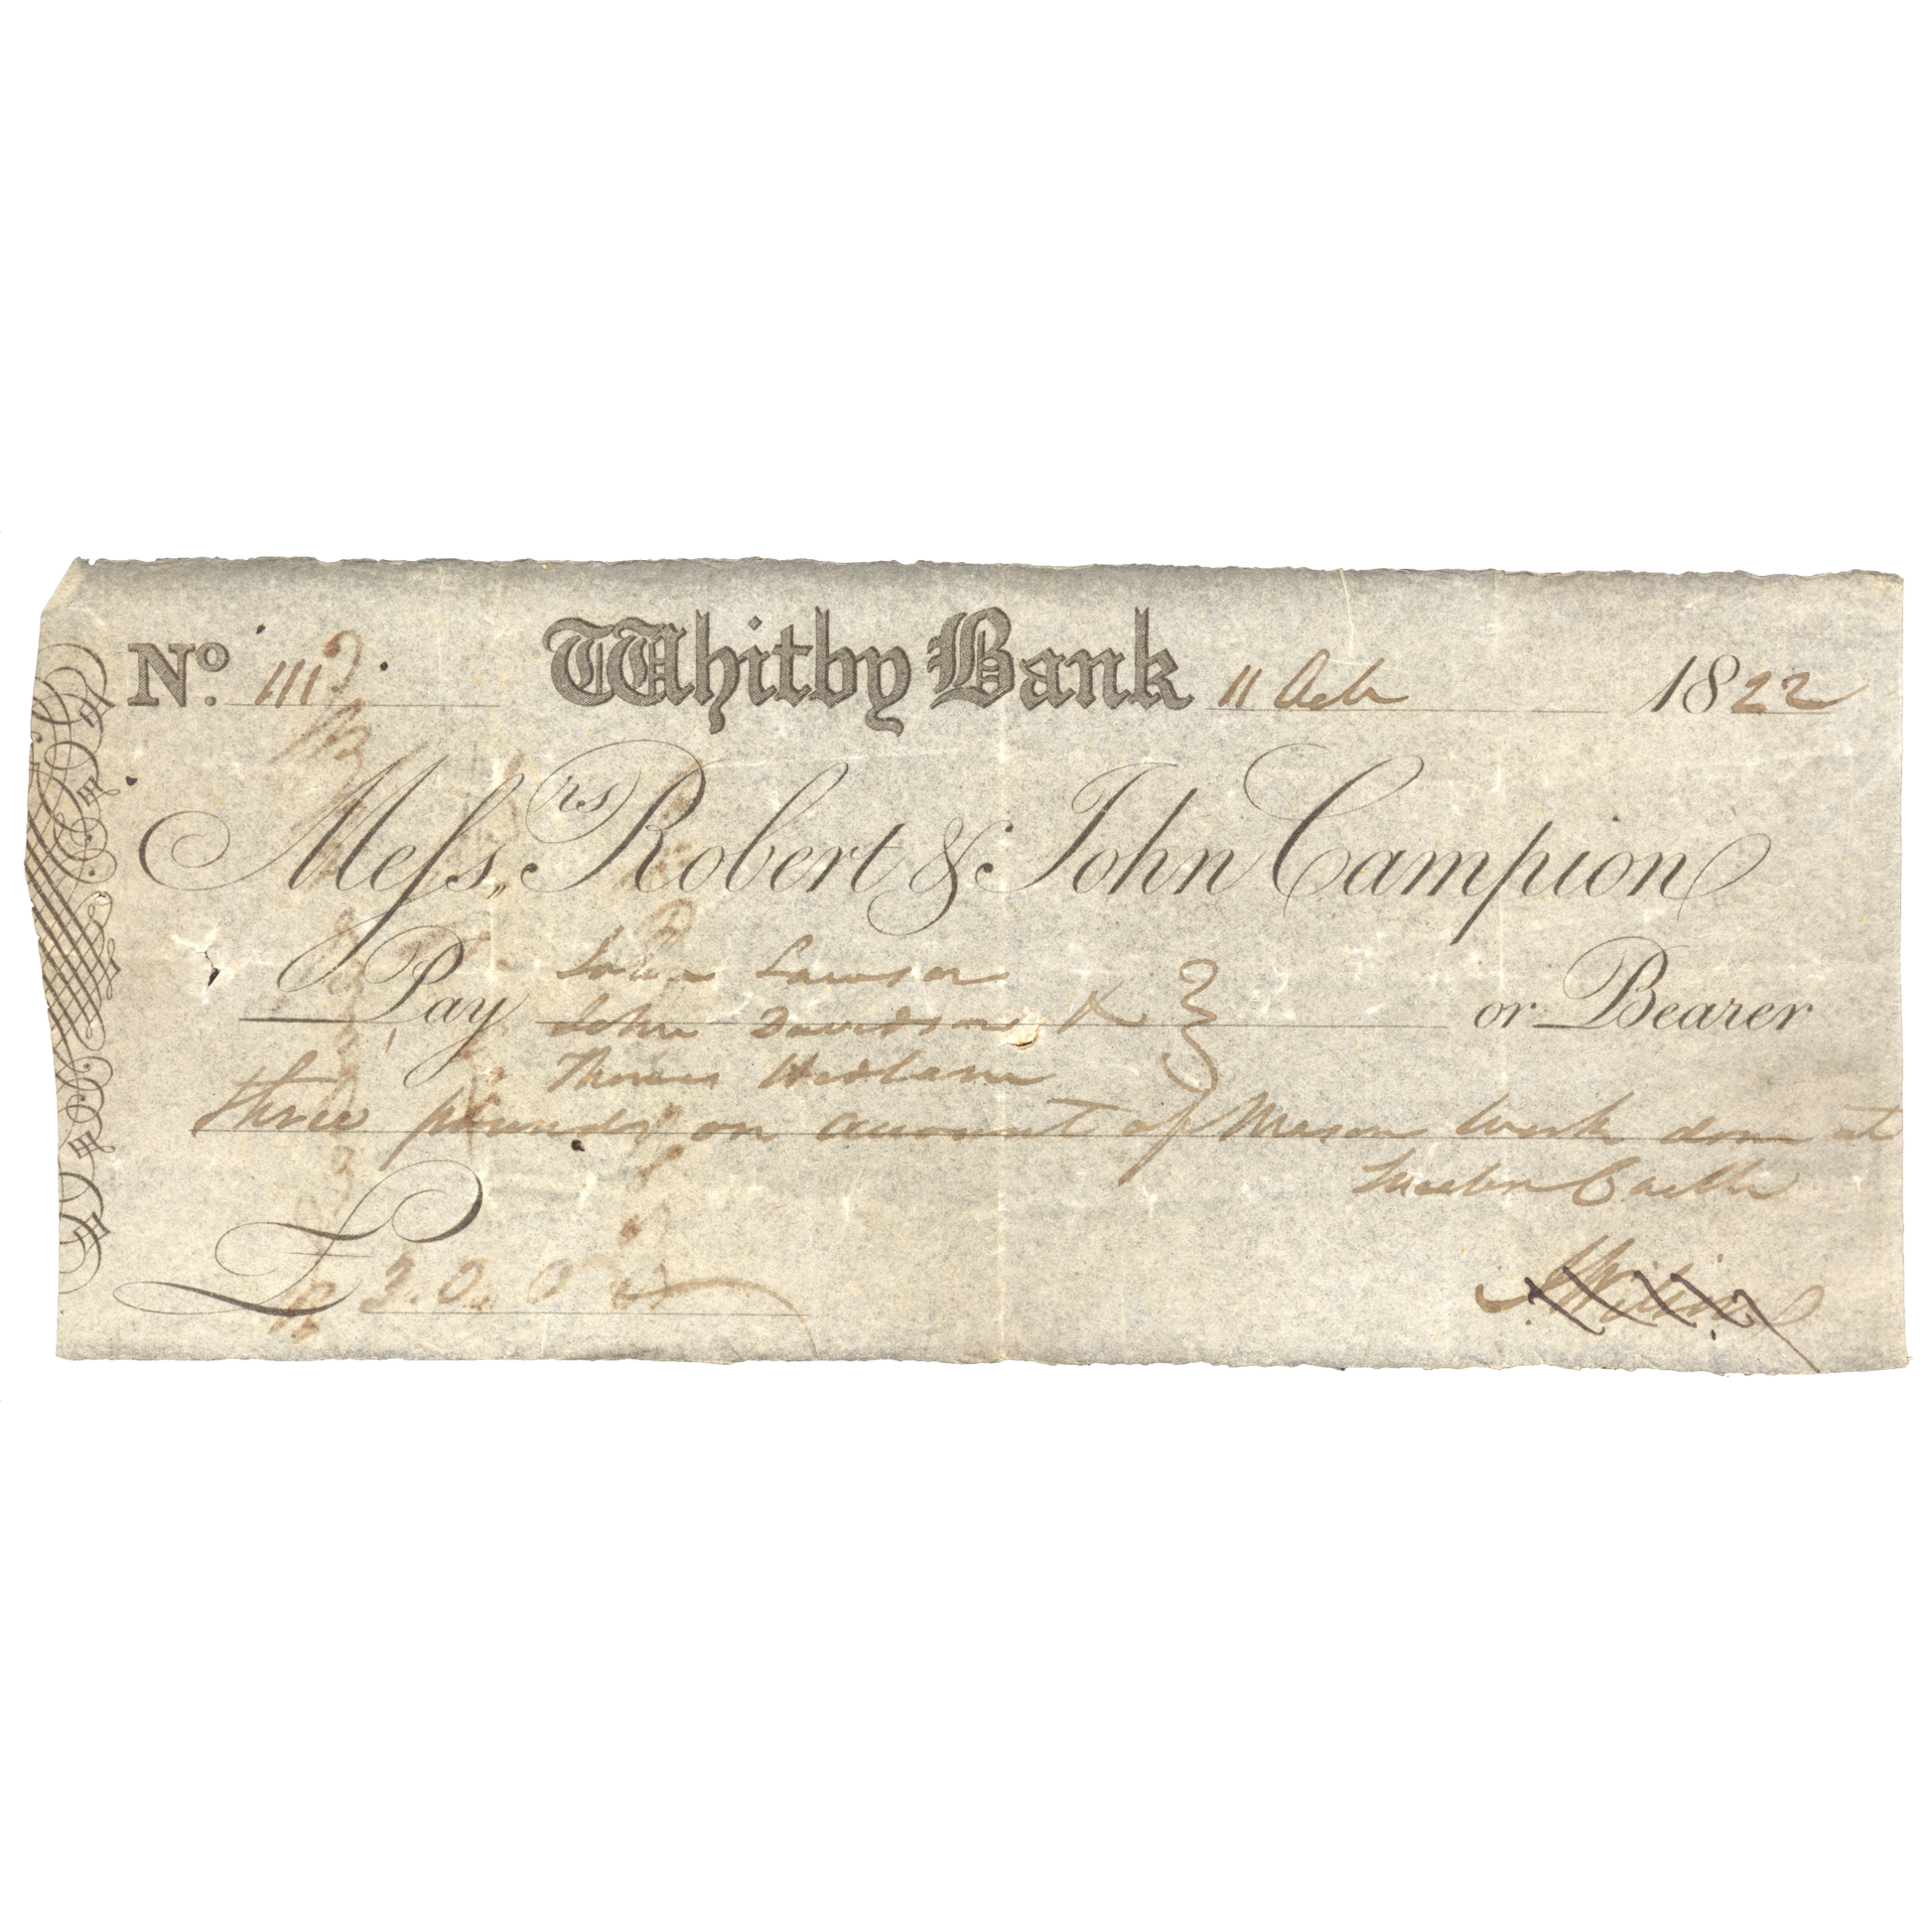 No. 111 Whitby Bank 11 Octr 1822
Messrs Robert & John Campion
John Lawson
Pay John Davidson & or Bearer
Thomas Hedlam
three pounds on account of Mason Work done at
Castle
£ 3. 0. 0